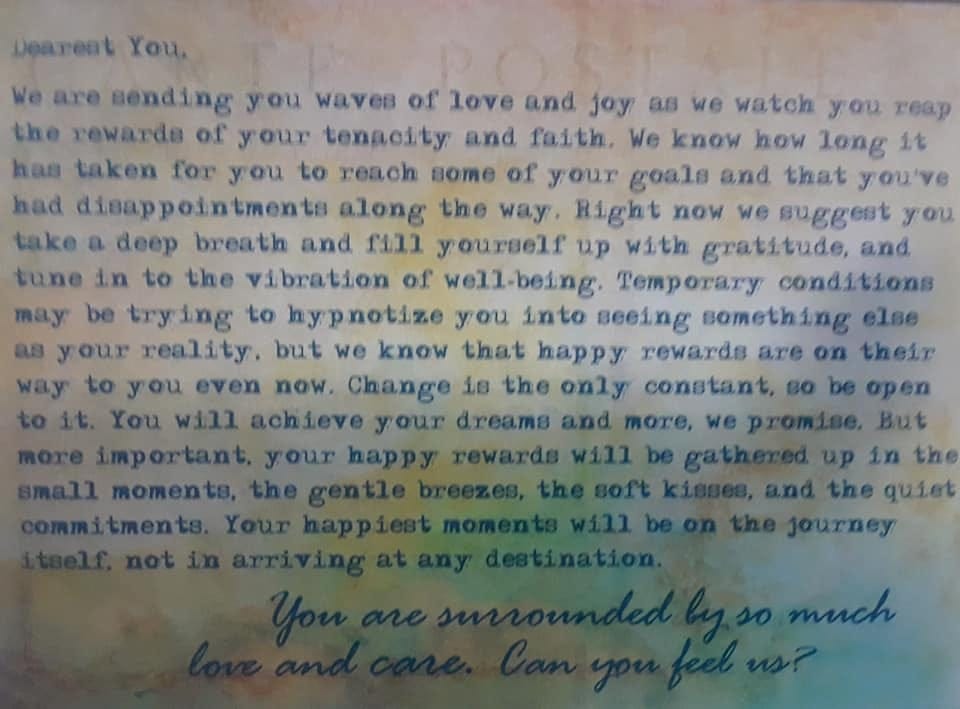 Dearest You,
CARTE POSTALE
We are sending you waves of love and joy as we watch you reap
the rewards of your tenacity and faith. We know how long it
has taken for you to reach some of your goals and that you've
had disappointments along the way. Right now we suggest you
take a deep breath and fill yourself up with gratitude, and
tune in to the vibration of well-being. Temporary conditions
may be trying to hypnotize you into seeing something else
as your reality, but we know that happy rewards are on their
way to you even now. Change is the only constant, so be open
to it. You will achieve your dreams and more, we promise. But
more important, your happy rewards will be gathered up in the
small moments, the gentle breezes, the soft kisses, and the quiet
commitments. Your happiest moments will be on the journey
itself, not in arriving at any destination.
You are surrounded by so much
love and care. Can you feel us?